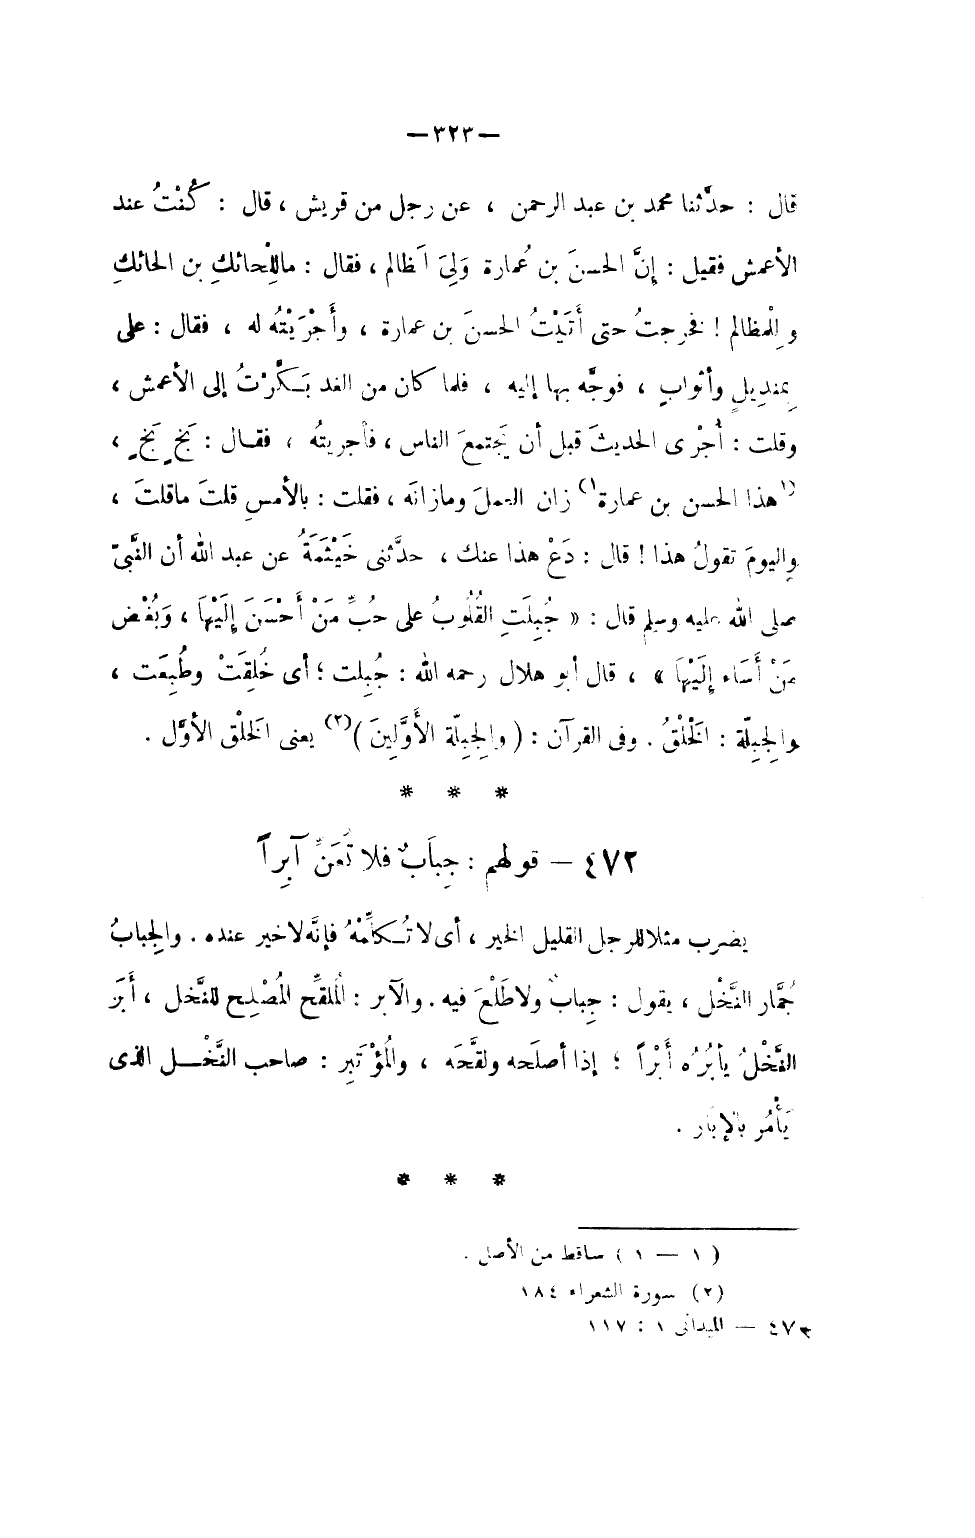 — ٣٢٣ —
قال : حدَّثنا محمد بن عبد الرحمن ، عن رجل من قريش ، قال : كُنْتُ عند
الأعمش فقيل : إنَّ الحسنَ بن عُمارة وَلِىَ المظالم ، فقال : ما للْحائكِ بن الحائكِ
والْمظالم ! فخرجتُ حتى أتَيْتُ الحسنَ بن عمارة ، وأَجْرَيْتُه له ، فقال : على
بمنديلٍ وأثوابٍ ، فوجَّه بها إليه ، فلما كان من الغد بَكَّرْتُ إلى الأعمش ،
وقلت : أُجْرى الحديثَ قبل أن يَجتمعَ الناس ، فأجريتُه ، فقال : بَخٍ بَخٍ ،
(١هذا الحسن بن عمارة١) زان العملَ ومازانَه ، فقلت : بالأمسِ قلتَ ماقلتَ ،
واليومَ تقولُ هذا ! قال : دَعْ هذا عنك ، حدَّثنى خَيْثَمَةُ عن عبد الله أن النَّبىّ
صلى الله عليه وسلم قال : « جُبِلَتِ القُلُوبُ على حُبِّ مَنْ أَحْسَنَ إِلَيْهَا ، وَبُغْض
مَنْ أَسَاء إِلَيْهَا » ، قال أبو هلال رحمه الله : جُبِلت ؛ أى خُلِقَتْ وطُبِعَت ،
والجِبِلّة : الْخَلْقُ . وفى القرآن : ( والجِبِلّة الأَوَّلِينَ )(٢) يعنى الخلْق الأوَّل .
* * *
٤٧٢ – قولهم : جِبابٌ فلا تُعَنِّ آبِراً
يضرب مثلا للرجل القليل الخير ، أى لا تُكلِّمْهُ فإنَّه لا خير عنده . والجِبابُ
جُمَّار النَّخْل ، يقول : جِبابٌ ولاطَلْعَ فيه . والآبر : المُلقِّح المُصْلِح للنَّخل ، أَبَرَ
النَّخْلَ يأبُرُه أَبْراً ؛ إذا أصلَحه ولقَّحَه ، والمُؤْتَبِر : صاحب النَّخْل الذى
يَأْمُر بالإبار .
* * *
( ١ — ١ ) ساقط من الأصل .
(٢) سورة الشعراء ١٨٤
٤٧٢ — الميدانى ١ : ١١٧